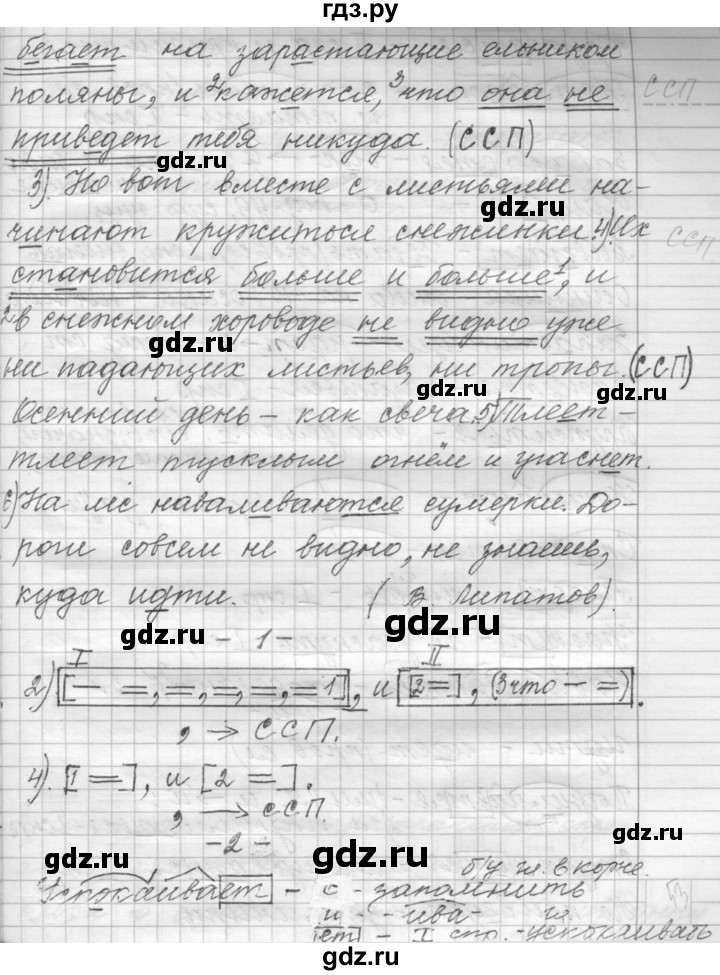 гдз.ру
бегает на зарастающие ельником
поляны, и ²кажется, ³что она не
приведет тебя никуда. (ССП)
ССП
gdz.ru
3). Но вот вместе с листьями на-
gdz.ru
чинают кружиться снежинки. 4). Их
ССП
gdz.ru
становится больше и больше¹, и
²в снежном хороводе не видно уже
gdz.ru
ни падающих листьев, ни тропы. (ССП)
gdz.ru
Осенний день – как свеча. 5) Тлеет –
тлеет тусклым огнём и угаснет.
gdz.ru
6) На лес наваливаются сумерки. До-
роги совсем не видно, не знаешь,
gdz.ru
куда идти. (В. Липатов).
gdz.ru
– 1 –
I II
2) [— =, =, =, =, = 1], и [2 =], (3 что — =).
, → ССП.
gdz.ru
4). [1 =], и [2 =].
, → ССП.
gdz.ru
– 2 –
gdz.ru
б/у гл. в корне.
Успокаивает – с – запомнить
53
и – -ива- гл.
ет – I спр. – успокаивать
gdz.ru